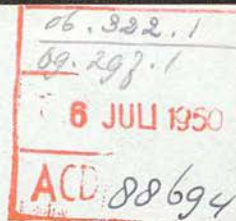 06.322.1
69.297.1
6 JULI 1950
ACD 88694